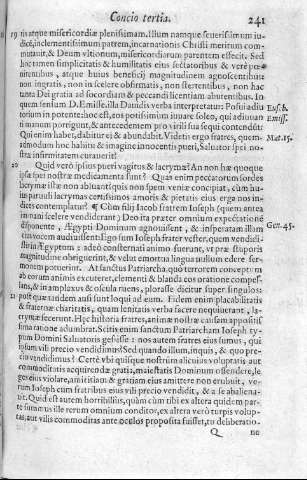 Concio tertia. 241
19 tis atque misericordiæ plenissimam. Illum namque seuerissimum iu
dicē, inclementissimum patrem, incarnationis Christi meritum com-
mutauit, & Deum vltionum, misericordiarum parentem effecit. Sed
hoc timen simplicitatis & humilitatis eius sectatoribus & verè pœ-
nitentibus, atque huius beneficij magnitudinem agnoscentibus
non ingratis, non in scelere obfirmatis, non stertentibus, non hac
tanta Dei gratia ad socordiam & peccandi licentiam abutentibus. In
quem sensum D. Emisse. illa Dauidis verba interpretatur: Posui adiu
torium in potente: hoc est, eos potissimum iuuare soleo, qui adiuuan
di manum porrigunt, & antecedenem pro virili sua sequi contendūt:
Qui enim habet, dabitur ei & abundabit. Videtis ergo fratres, quem-
admodum hoc habitu & imagine innocentis pueri, Saluator spei no-
stra infirmitatem curauerit!
Euseb.
Emiss.
Mat. 25.
20 Quid verò ipsius pueri vagitus & lacrymæ? An non hæ quoque
ipsa spei nostræ medicamenta sunt? Quas enim peccatorum sordes
lacrymæ istæ non abluant? quis non spem veniæ concipiat, cùm hu-
ius paruuli lacrymas certissimos amoris & pietatis eius erga nos in-
dices contemplatur? ¶ Cùm filij Iacob fratrem Ioseph (quem antea
inmani scelere vendiderant) Deo ita præter omnium expectationē
disponente, Ægypti Dominum agnouissent, & insperatam illam
vocem audiuissent: Ego sum Ioseph frater vester, quem vendidi-
stis in Ægyptum: adeò consternati animo fuerunt, vt præ stuporis
magnitudine obriguerint, & velut emortua lingua nullum edere ser-
monem potuerint. At sanctus Patriarcha quò terrorem conceptum
ab eorum animis excuteret, clementi & blanda eos oratione compel-
lans, & in amplexus & oscula ruens, plorasse dicitur super singulos:
Gen. 45.
21 post quæ tandem ausi sunt loqui ad eum. Eidem enim placabilitatis
& fraternæ charitatis, quam lenitatis verba facere nequiuerant, la-
crymæ fecerunt. Hæc historia fratres, an infantiæ nostræ causam appositis-
sima ratione adumbrat. Scitis enim sanctum Patriarcham Ioseph ty-
pum Domini Saluatoris gessisse: nos autem fratres eius sumus, qui
ipsum vili precio vendidimus: Sed quando illum, inquis, & quo pre-
cio vendidimus? Certè vbi quisque nostrûm alicuius voluptatis aut
commoditatis acquirendæ gratia, maiestatis Dominum offendere, le-
ges eius violare, amicitiam & gratiam eius amittere non erubuit, ve-
rum Ioseph cum fratribus eius vili precio vendidit, & à se abaliena-
uit. Quid est autem horribilius, quàm cùm tibi ex altera quidem par-
te summus ille rerum omnium conditor, ex altera verò turpis volup-
tas, aut vilis commoditas ante oculos proposita fuisset, tu deliberatio-
Q ne